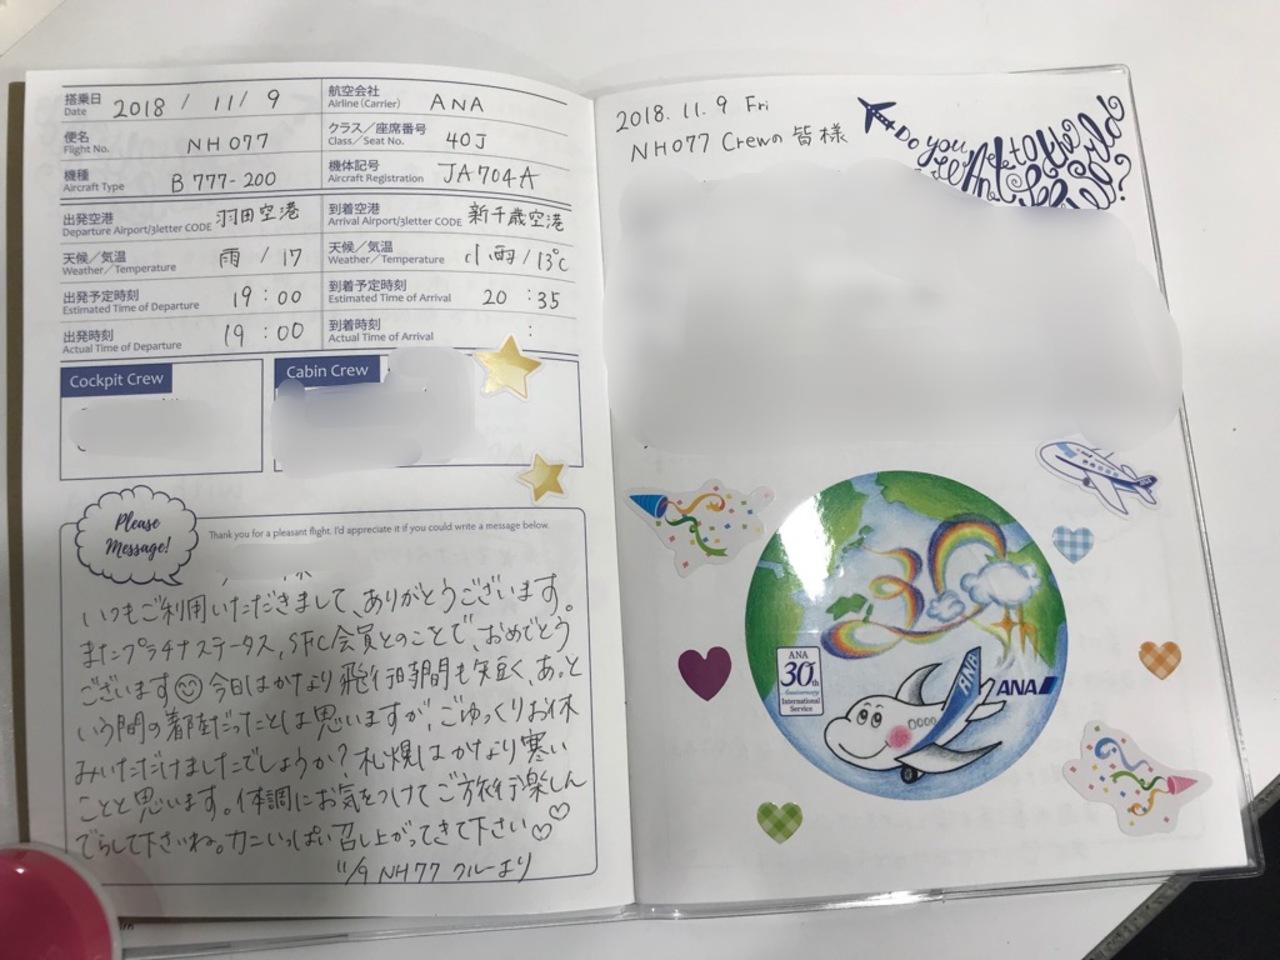 搭乗日
Date
2018 / 11/ 9
航空会社
Airline (Carrier)
ANA
便名
Flight No.
NH077
クラス／座席番号
Class／Seat No.
40J
機種
Aircraft Type
B777-200
機体記号
Aircraft Registration
JA704A
出発空港
Departure Airport/3letter CODE
羽田空港
到着空港
Arrival Airport/3letter CODE
新千歳空港
天候／気温
Weather／Temperature
雨 / 17
天候／気温
Weather／Temperature
小雨 / 13℃
出発予定時刻
Estimated Time of Departure
19:00
到着予定時刻
Estimated Time of Arrival
20:35
出発時刻
Actual Time of Departure
19:00
到着時刻
Actual Time of Arrival
:
Cockpit Crew
Cabin Crew
Please
Message!
Thank you for a pleasant flight. I'd appreciate it if you could write a message below.
いつもご利用いただきまして、ありがとうございます。
またプラチナステータス、SFC会員とのことで、おめでとう
ございます 今日はかなり飛行時間も短く、あっと
いう間の着陸だったことは思いますが、ごゆっくりお休
みいただけましたでしょうか？札幌はかなり寒い
ことと思います。体調にお気をつけてご旅行楽しん
でらして下さいね。カニいっぱい召し上がってきて下さい♡♡
11/9 NH77 クルーより
2018. 11. 9 Fri
NH077 Crewの皆様
Do you
want to
see the
world?
30th
ANA
30th
Anniversary
International
Service
ANA
ANA